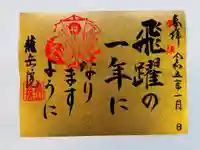 奉拝
令和五年一月
日
飛躍の
一年に
なり
ますように
龍岳院